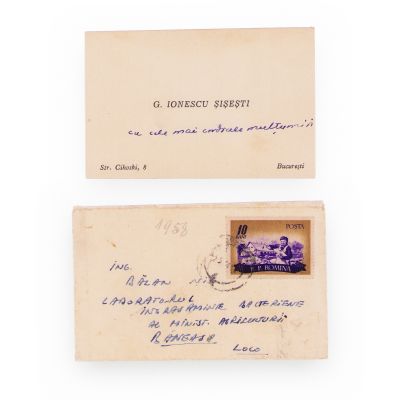 G. IONESCU ȘIȘEȘTI
cu cele mai cordiale mulțumiri
Str. Cihoski, 8
București
1958
10 BANI
POSTA
R. P. ROMINA
ING.
BĂLAN
LABORATORUL
ÎNGRĂȘĂMINTE BACTERIENE
AL MINIST. AGRICULTURII
BĂNEASA
LOCO